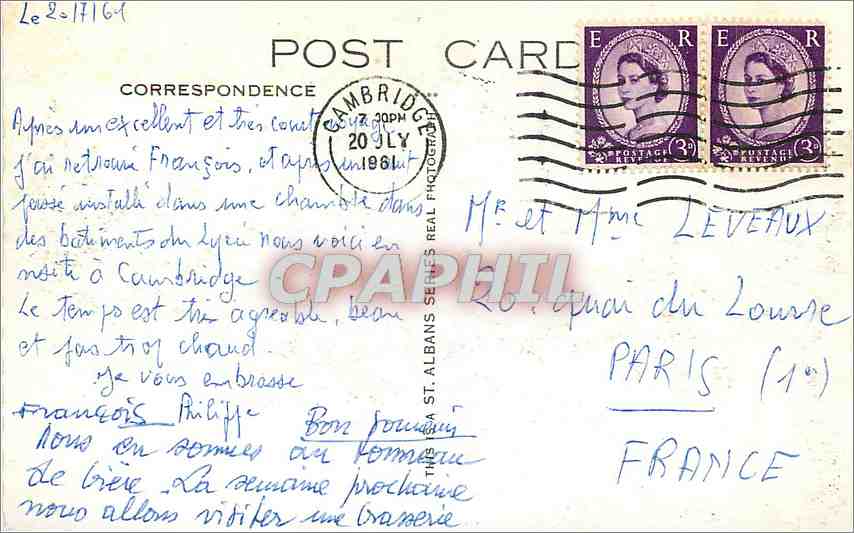 Le 20/7/61
POST CARD
CORRESPONDENCE
Après un excellent et très court voyage
j'ai retrouvé François, et après une nuit
passée installé dans une chambre dans
des bâtiments du Lycée nous voici en
visite à Cambridge
Le temps est très agréable, beau
et pas trop chaud.
Je vous embrasse
François Philippe
Bon Souvenir
Nous en sommes au tonneau
de bière. La semaine prochaine
nous allons visiter une brasserie
THIS IS A ST. ALBANS SERIES REAL PHOTOGRAPH
CAMBRIDGE
7.30PM
20 JLY
1961
E R
POSTAGE
REVENUE
3D
E R
POSTAGE
REVENUE
3D
Mr et Mme LEVEAUX
20, quai du Louvre
PARIS (1er)
FRANCE
CPAPHIL